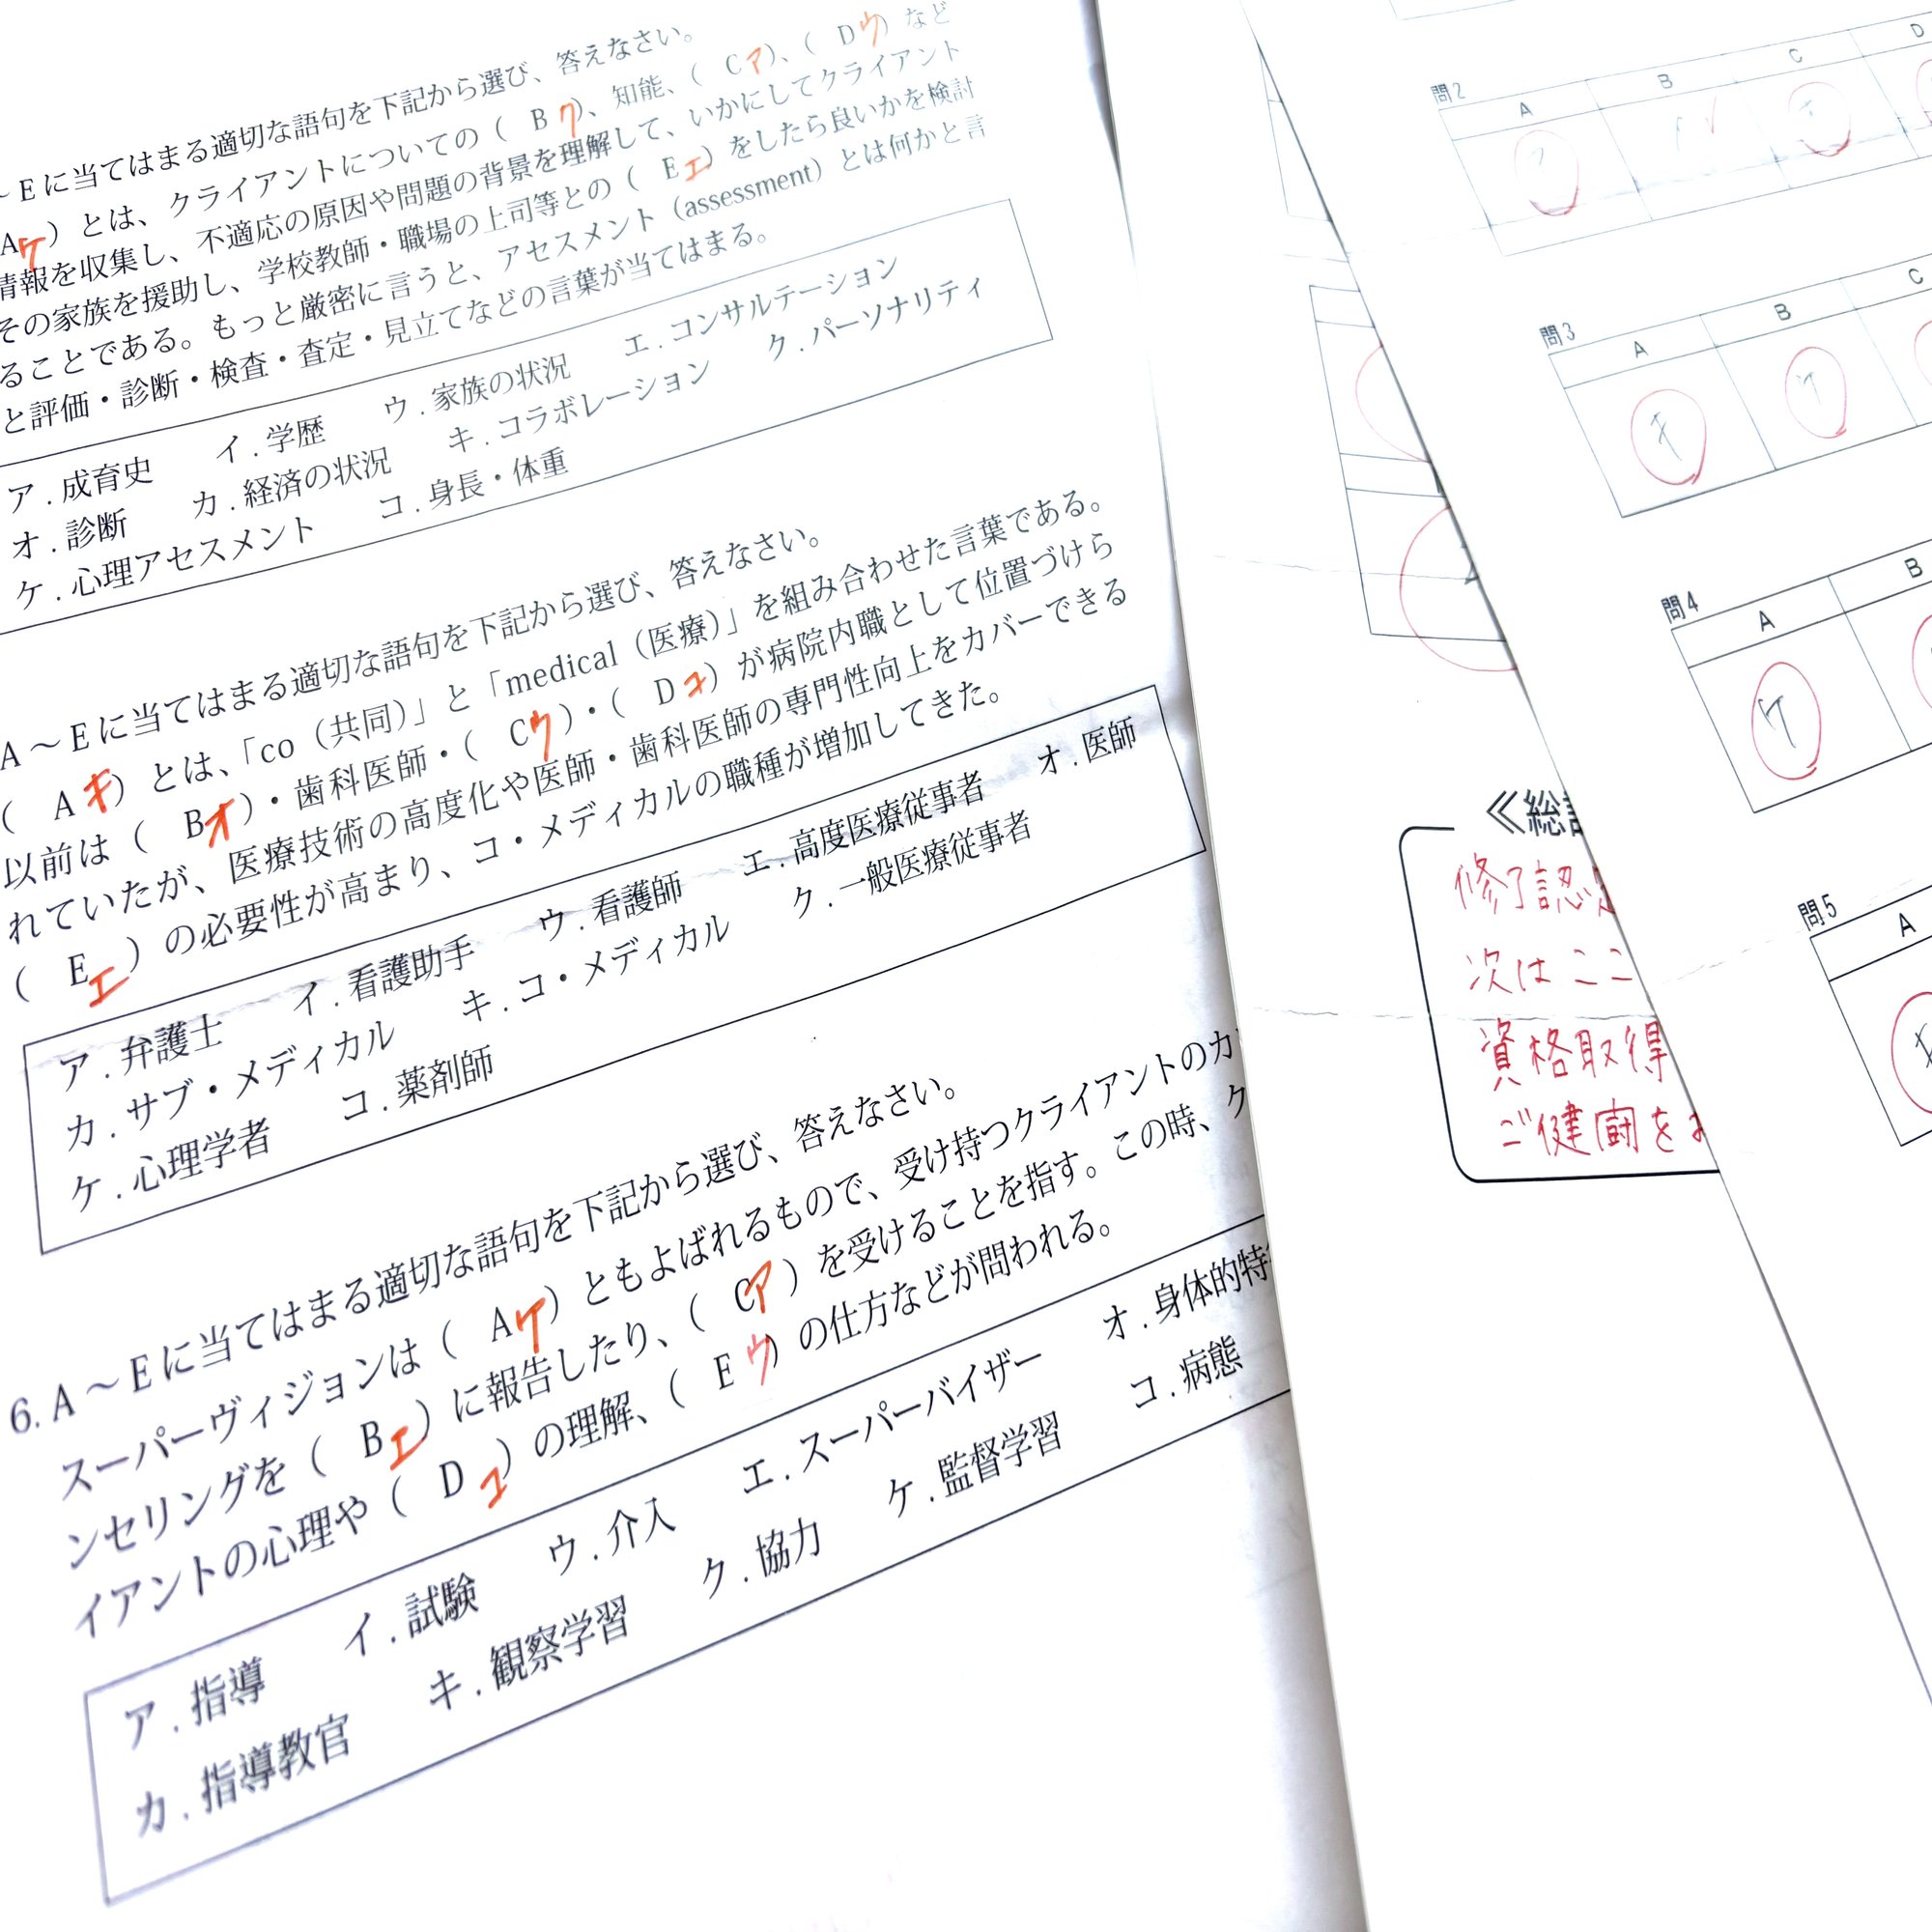 ～Eに当てはまる適切な語句を下記から選び、答えなさい。
Aケ）とは、クライアントについての（ Bク）、知能、（ Cア）、（ Dウ）など
情報を収集し、不適応の原因や問題の背景を理解して、いかにしてクライアント
その家族を援助し、学校教師・職場の上司等との（ Eエ）をしたら良いかを検討
ることである。もっと厳密に言うと、アセスメント（assessment）とは何かと言
と評価・診断・検査・査定・見立てなどの言葉が当てはまる。
ア．成育史 イ．学歴 ウ．家族の状況 エ．コンサルテーション
オ．診断 カ．経済の状況 キ．コラボレーション ク．パーソナリティ
ケ．心理アセスメント コ．身長・体重
A～Eに当てはまる適切な語句を下記から選び、答えなさい。
（ Aキ）とは、「co（共同）」と「medical（医療）」を組み合わせた言葉である。
以前は（ Bオ）・歯科医師・（ Cウ）・（ Dコ）が病院内職として位置づけら
れていたが、医療技術の高度化や医師・歯科医師の専門性向上をカバーできる
（ Eエ）の必要性が高まり、コ・メディカルの職種が増加してきた。
ア．弁護士 イ．看護助手 ウ．看護師 エ．高度医療従事者 オ．医師
カ．サブ・メディカル キ．コ・メディカル ク．一般医療従事者
ケ．心理学者 コ．薬剤師
6. A～Eに当てはまる適切な語句を下記から選び、答えなさい。
スーパーヴィジョンは（ Aケ）ともよばれるもので、受け持つクライアントのカ
ンセリングを（ Bエ）に報告したり、（ Cア）を受けることを指す。この時、ク
イアントの心理や（ Dコ）の理解、（ Eウ）の仕方などが問われる。
ア．指導 イ．試験 ウ．介入 エ．スーパーバイザー オ．身体的特
カ．指導教官 キ．観察学習 ク．協力 ケ．監督学習 コ．病態
《総
修了認
次はここ
資格取得
ご健闘を
問2
A B C D
問3
A B C
キ ケ
問4
A B
ケ
問5
A